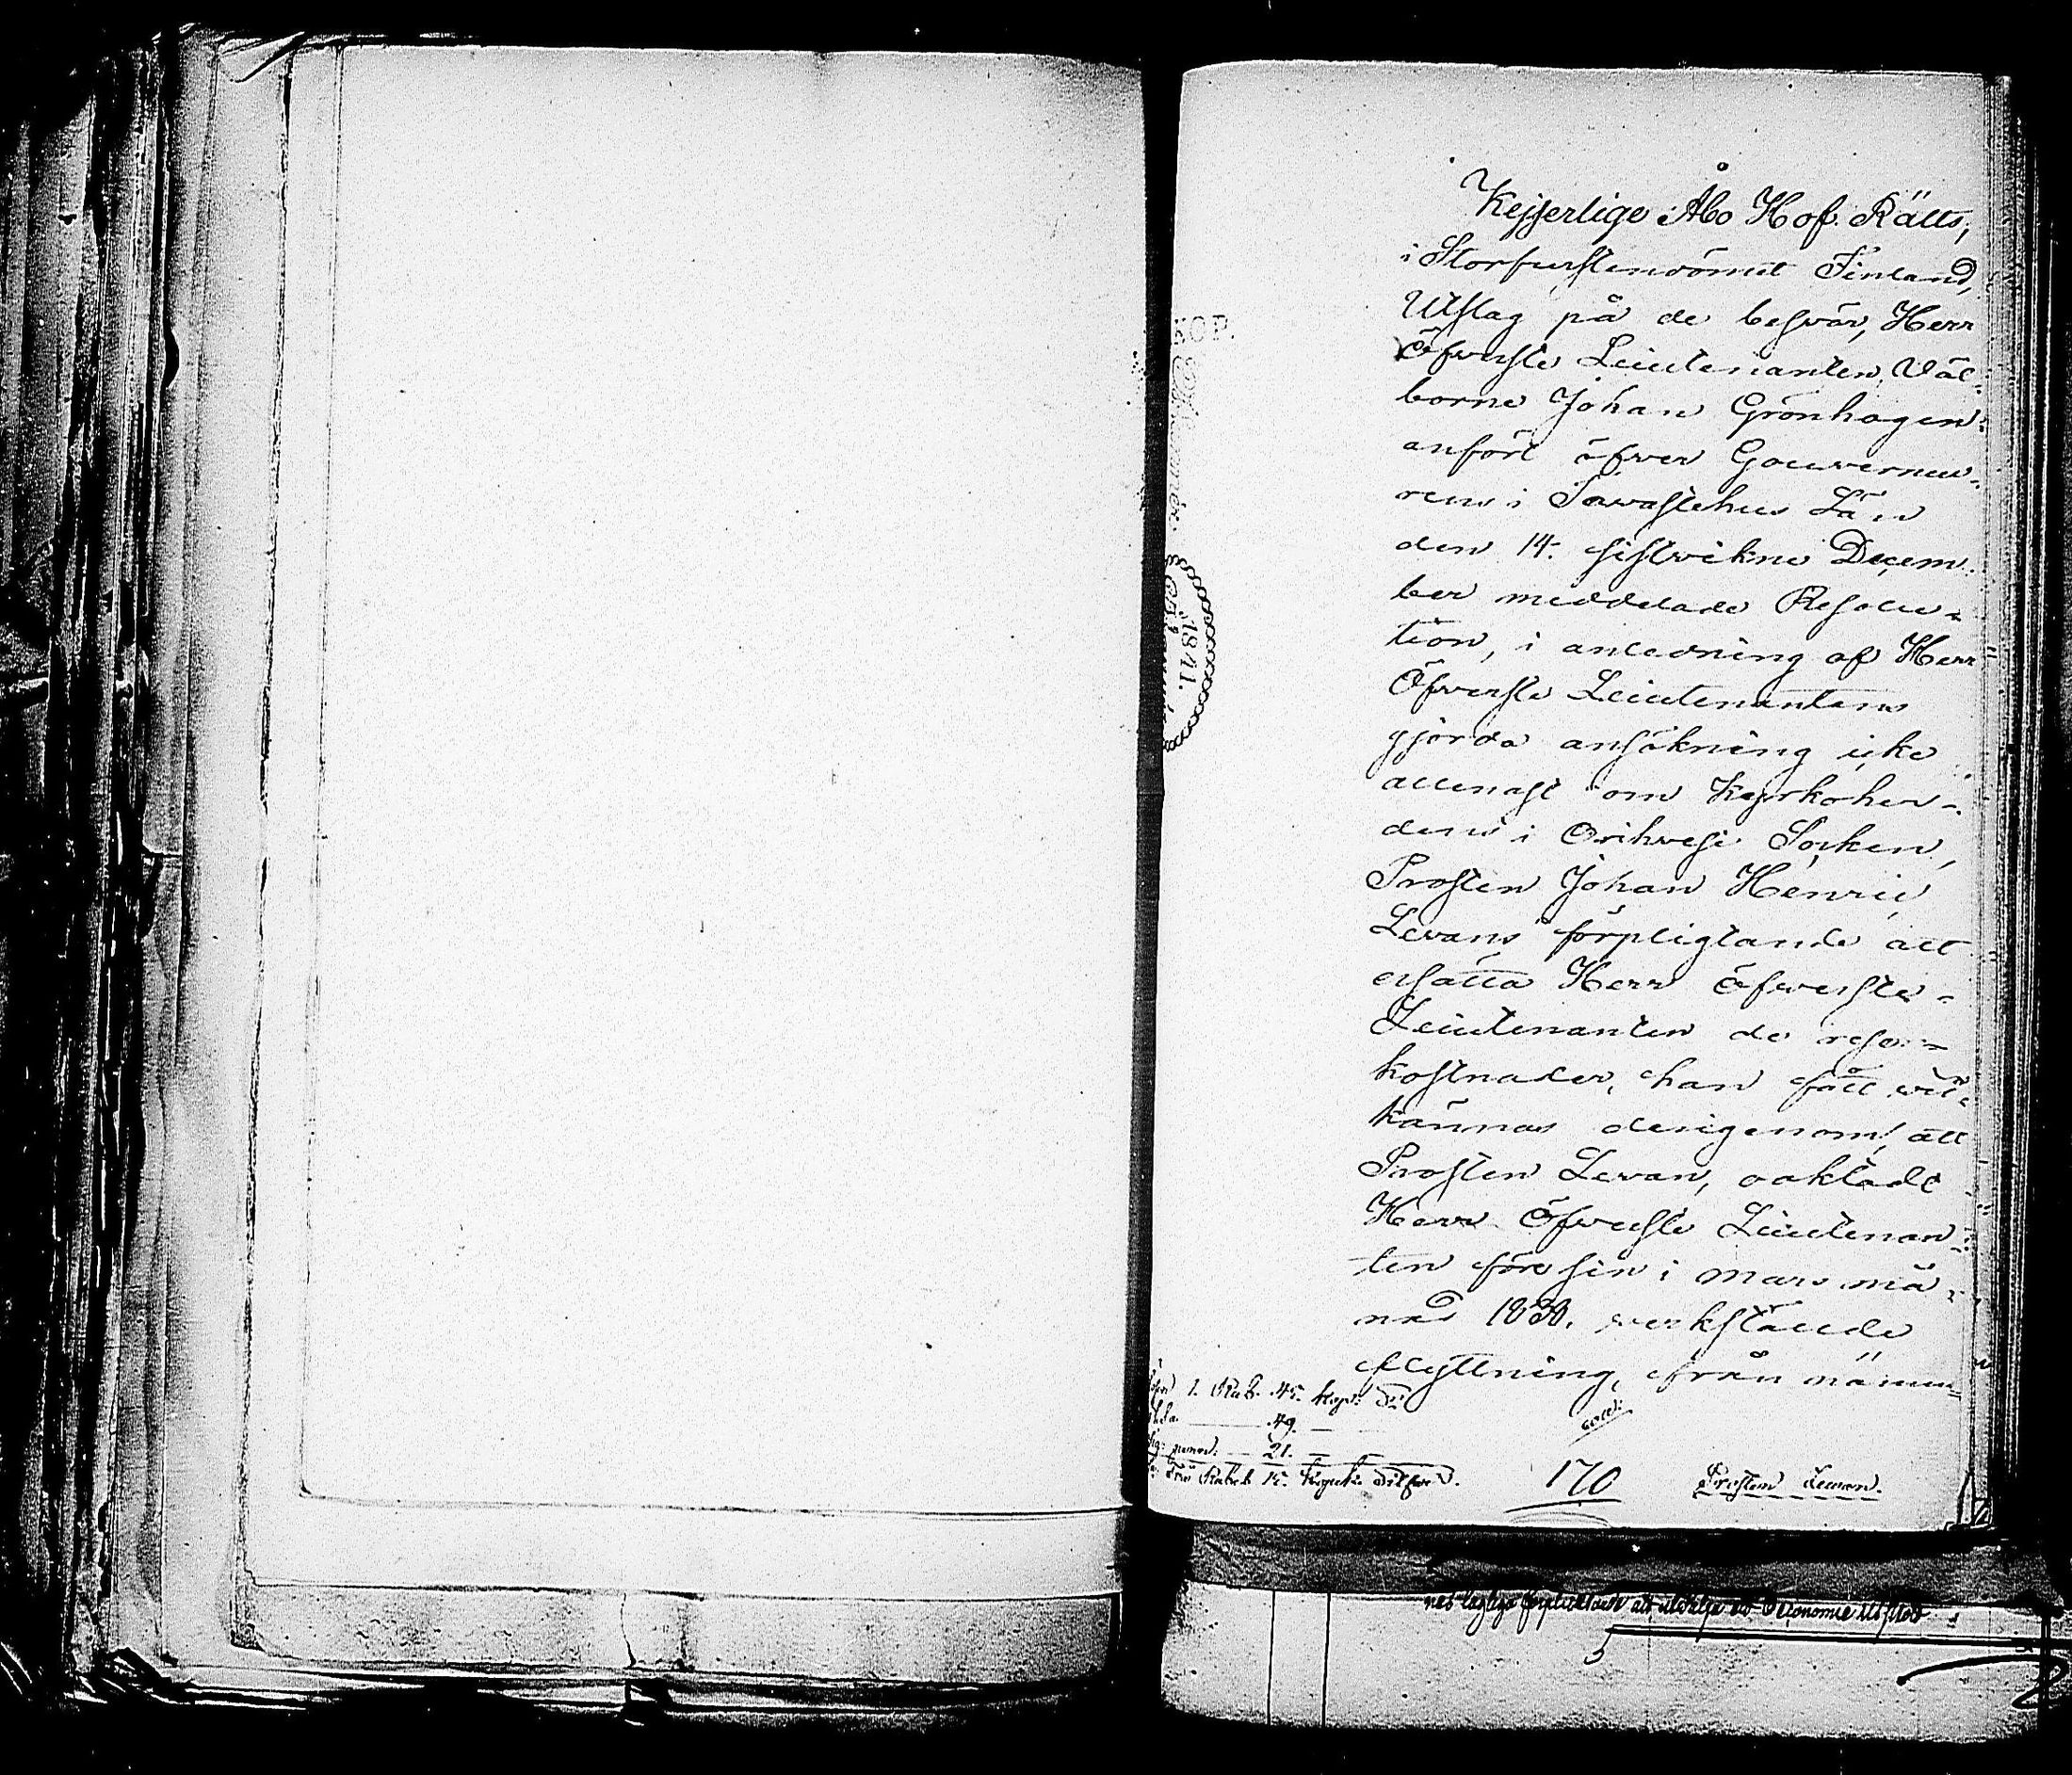 Kejserlige Åbo Hof Rätts,
i Storfurstendömet Finland,
Utslag på de besvär, Herr
Öfverste Lieutenanten, Väl-
borne Johan Grönhagen
anfört öfver Gouverneu-
rens i Tavastehus Län
den 14. sistvikne Decem-
ber meddelade Resolu-
tion, i anledning af Herr
Öfverste Lieutenantens
gjorda ansökning icke
allenast om Kyrkoher-
dens i Orihvesi Socken,
Prosten Johan Henric
Levans förpligtande att
ersätta Herr Öfverste-
Lieutenanten de rese-
kostnader, han fått vid-
kännas derigenom, att
Prosten Levan, oaktadt
Herr Öfverste Lieutenan-
ten före sin i Mars må-
nad 1838. verkstälde
flyttning, från
1. Rub. 45. kop:
49.
21.
Rubel 15. Kopek Silfver.
170
Prosten Levan.
KOP.
1841.
att utvälja